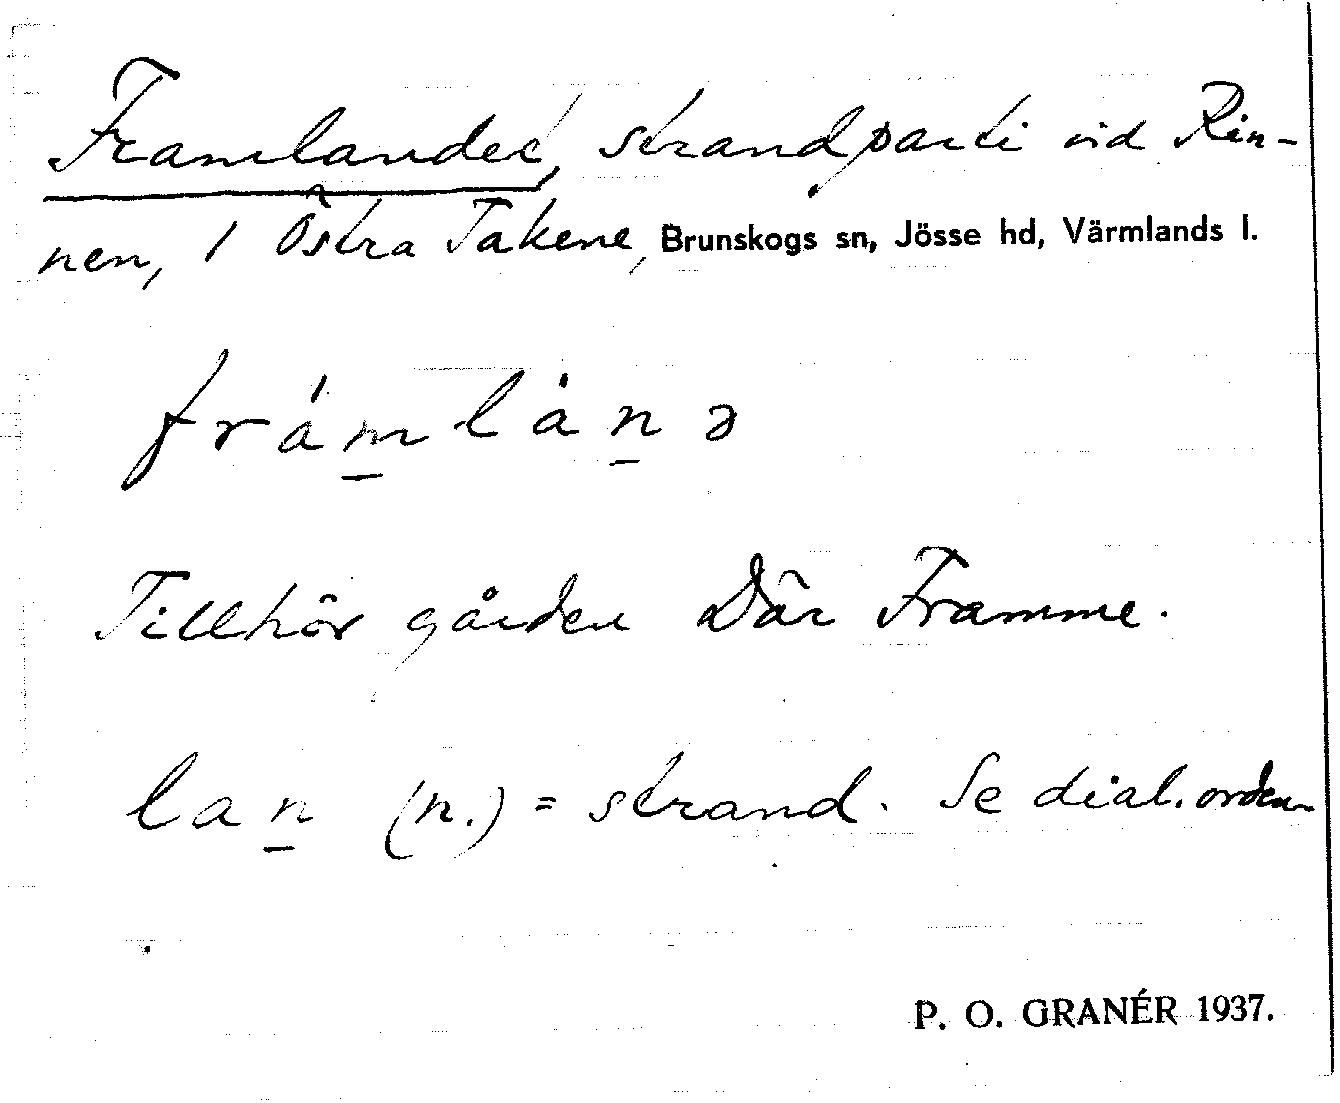 Framlandet, strandparti vid Rin-
nen, i Östra Takene, Brunskogs sn, Jösse hd, Värmlands l.
frámlànə
Tillhör gården Där Framme.
lan (n.) = strand. Se dial. orden.
P. O. GRANÉR 1937.